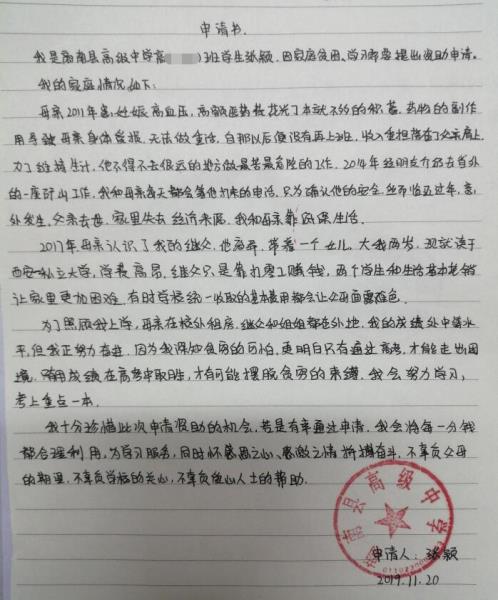 申请书.
我是商南县高级中学高 )班学生张颖,因家庭贫困、学习印象提出资助申请。
我的家庭情况如下:
母亲2011年患妊娠高血压,高额医药费花光了本就不多的积蓄。药物的副作
用导致母亲身体发胀,无法做重活,自那以后便没有再上班,收入重担落在了父亲肩上.
为了维持生计,他不得不去很远的地方做最苦最危险的工作。2014年经朋友介绍去省外
的一座矿山工作,我和母亲每天都会等他打来的电话,只为确认他的安全,然而临近过年,意
外发生,父亲去世,家里失去经济来源,我和母亲靠低保生活。
2017年母亲认识了我的继父,他离异,带着一个女儿,大我两岁,现就读于
西安一私立大学,学费高昂,继父只是靠打零工赚钱,两个学生和生活基本花销
让家里更加困难,有时学校统一收取的基本费用都会让父母面露难色.
为了照顾我上学,母亲在校外租房,继父和姐姐都在外地,我的成绩处中等水
平,但我正努力奋进,因为我深知贫穷的可怕,更明白只有通过高考,才能走出困
境,用成绩在高考中取胜,才有可能摆脱贫穷的束缚,我会努力学习,
考上重点一本.
我十分珍惜此次申请资助的机会,若是有幸通过申请,我会将每一分钱
都合理利用,为学习服务,同时怀感恩之心、感激之情拼搏奋斗,不辜负父母
的期望,不辜负学校的关心,不辜负做心人士的帮助.
商南县高级中学
申请人:张颖
2019.11.20